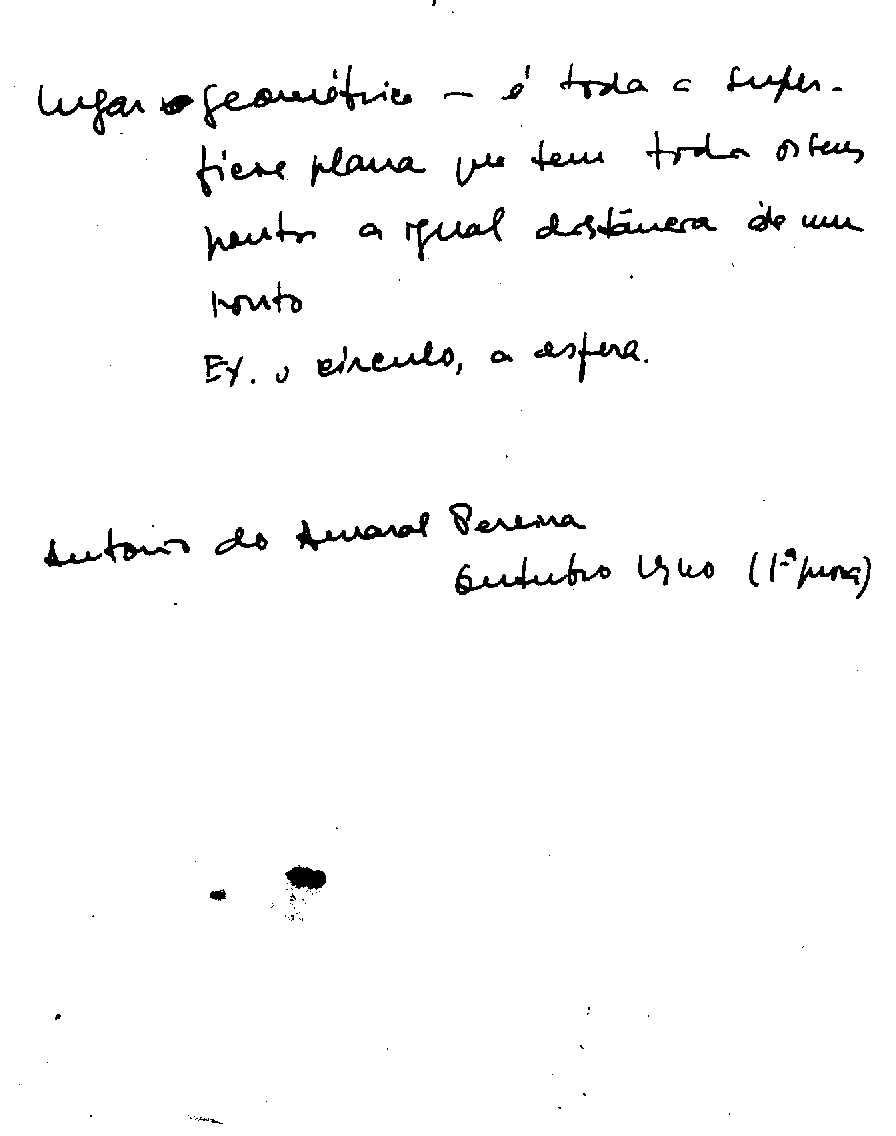 Lugar geométrico – é toda a super-
fície plana que tem todos os seus
pontos a igual distância de um
ponto
Ex. o círculo, a esfera.
Antonio do Amaral Pereira
Outubro 1940 (1ª prova)